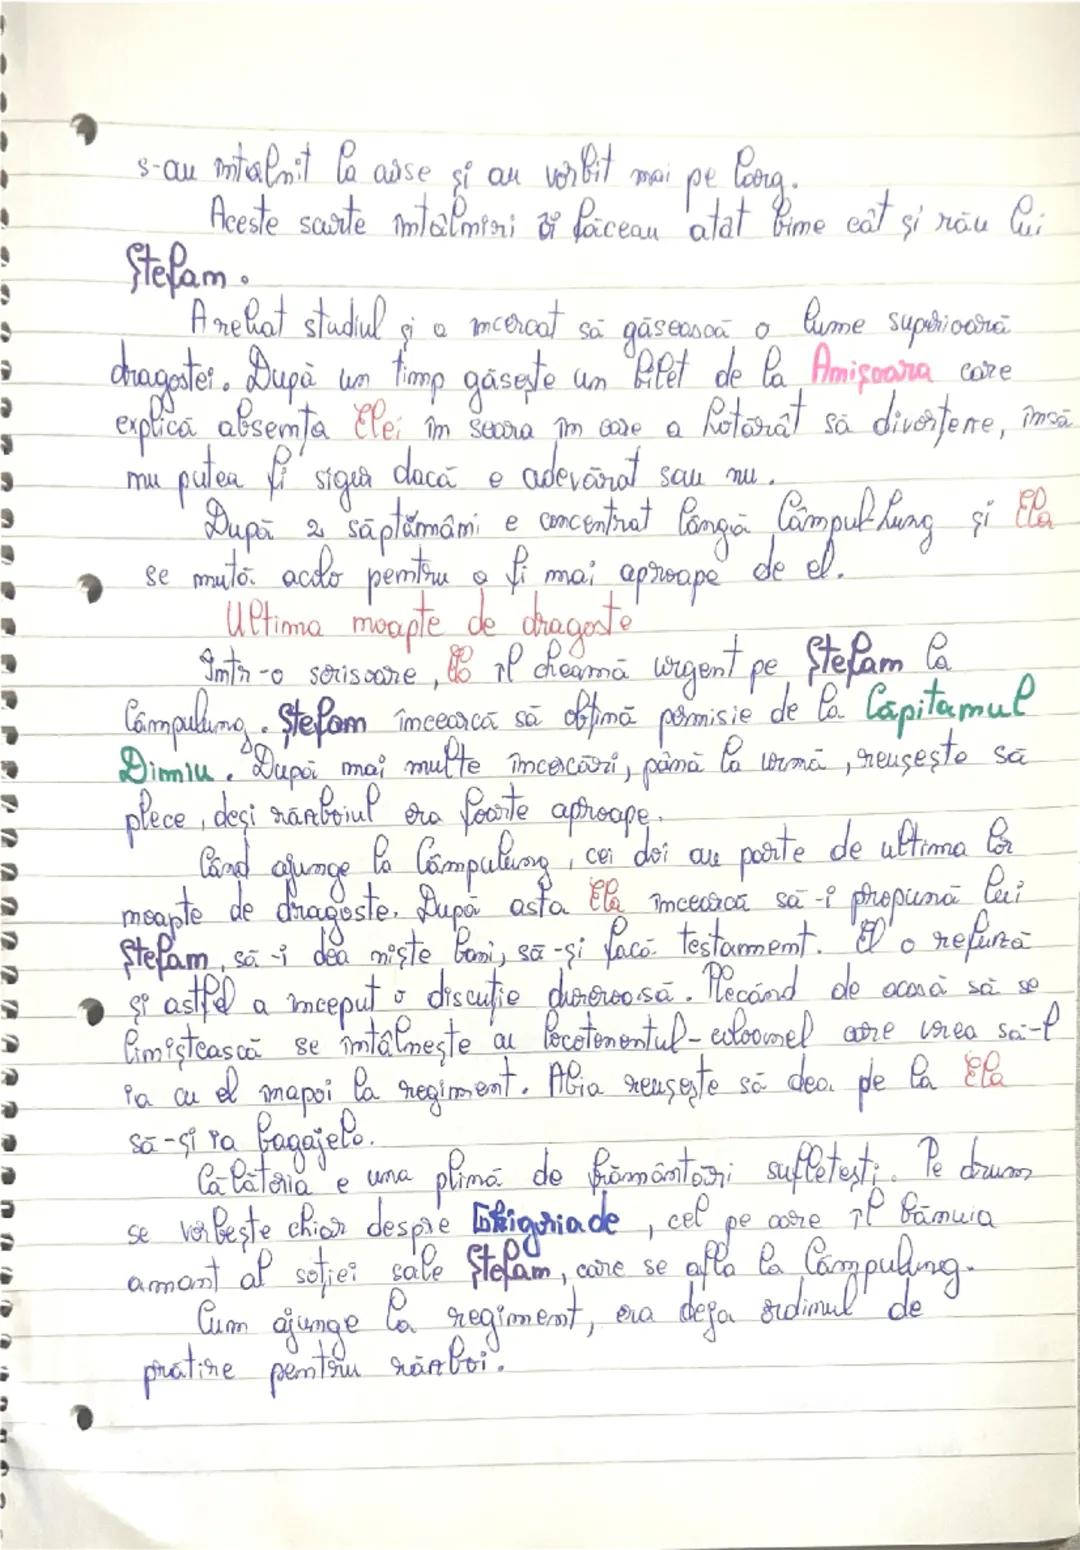 s-au întâlnit la curse și au vorbit mai pe larg.
Aceste scurte întâlniri îi făceau atat bine cât și rău lui
Ștefan.
A reluat studiul și a încercat să găsească o lume superioară
dragostei. După un timp găsește un bilet de la Anișoara care
explică absența Elei în seara în care a hotărât să divorțeze, însă
nu putea fi sigur dacă e adevărat sau nu.
După 2 săptămâni e concentrat lângă Câmpul Lung și Ela
se mută acolo pentru a fi mai aproape de el.
Ultima noapte de dragoste
Într-o scrisoare, îl cheamă urgent pe Ștefan la
Câmpulung. Ștefan încearcă să obțină permisie de la Căpitanul
Dimiu. După mai multe încercări, până la urmă, reușește să
plece, deși războiul era foarte aproape.
Când ajunge la Câmpulung, cei doi au parte de ultima lor
noapte de dragoste. După asta Ela încearcă să-i propună lui
Ștefan, să-i dea niște bani, să-și facă testament. El o refuză
și astfel a început o discuție dureroasă. Plecând de acasă să se
liniștească se întâlnește cu locotenentul-colonel care vrea să-l
ia cu el înapoi la regiment. Abia reușește să dea pe la Ela
să-și ia bagajele.
Călătoria e una plină de frământări sufletești. Pe drum
se vorbește chiar despre Grigoriade, cel pe care îl bănuia
amant al soției sale Ștefan, care se afla la Câmpulung.
Cum ajunge la regiment, era deja ordinul de
pratire pentru război.